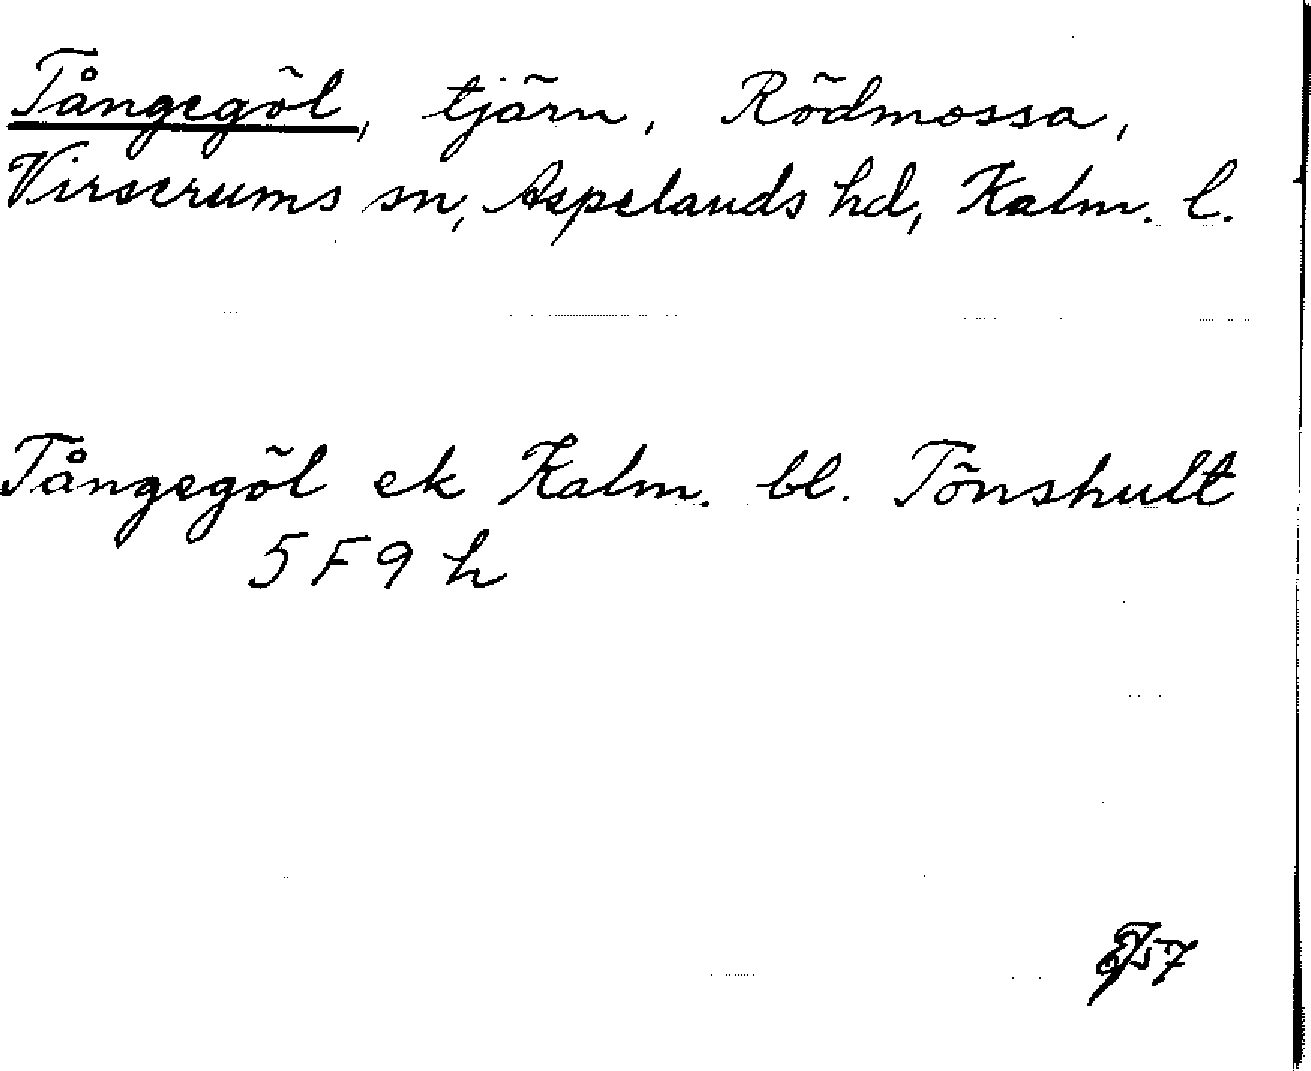 Tångegöl, tjärn, Rödmossa,
Virserums sn, Aspelands hd, Kalm. l.
Tångegöl ek Kalm. bl. Tönshult
5 F 9 h